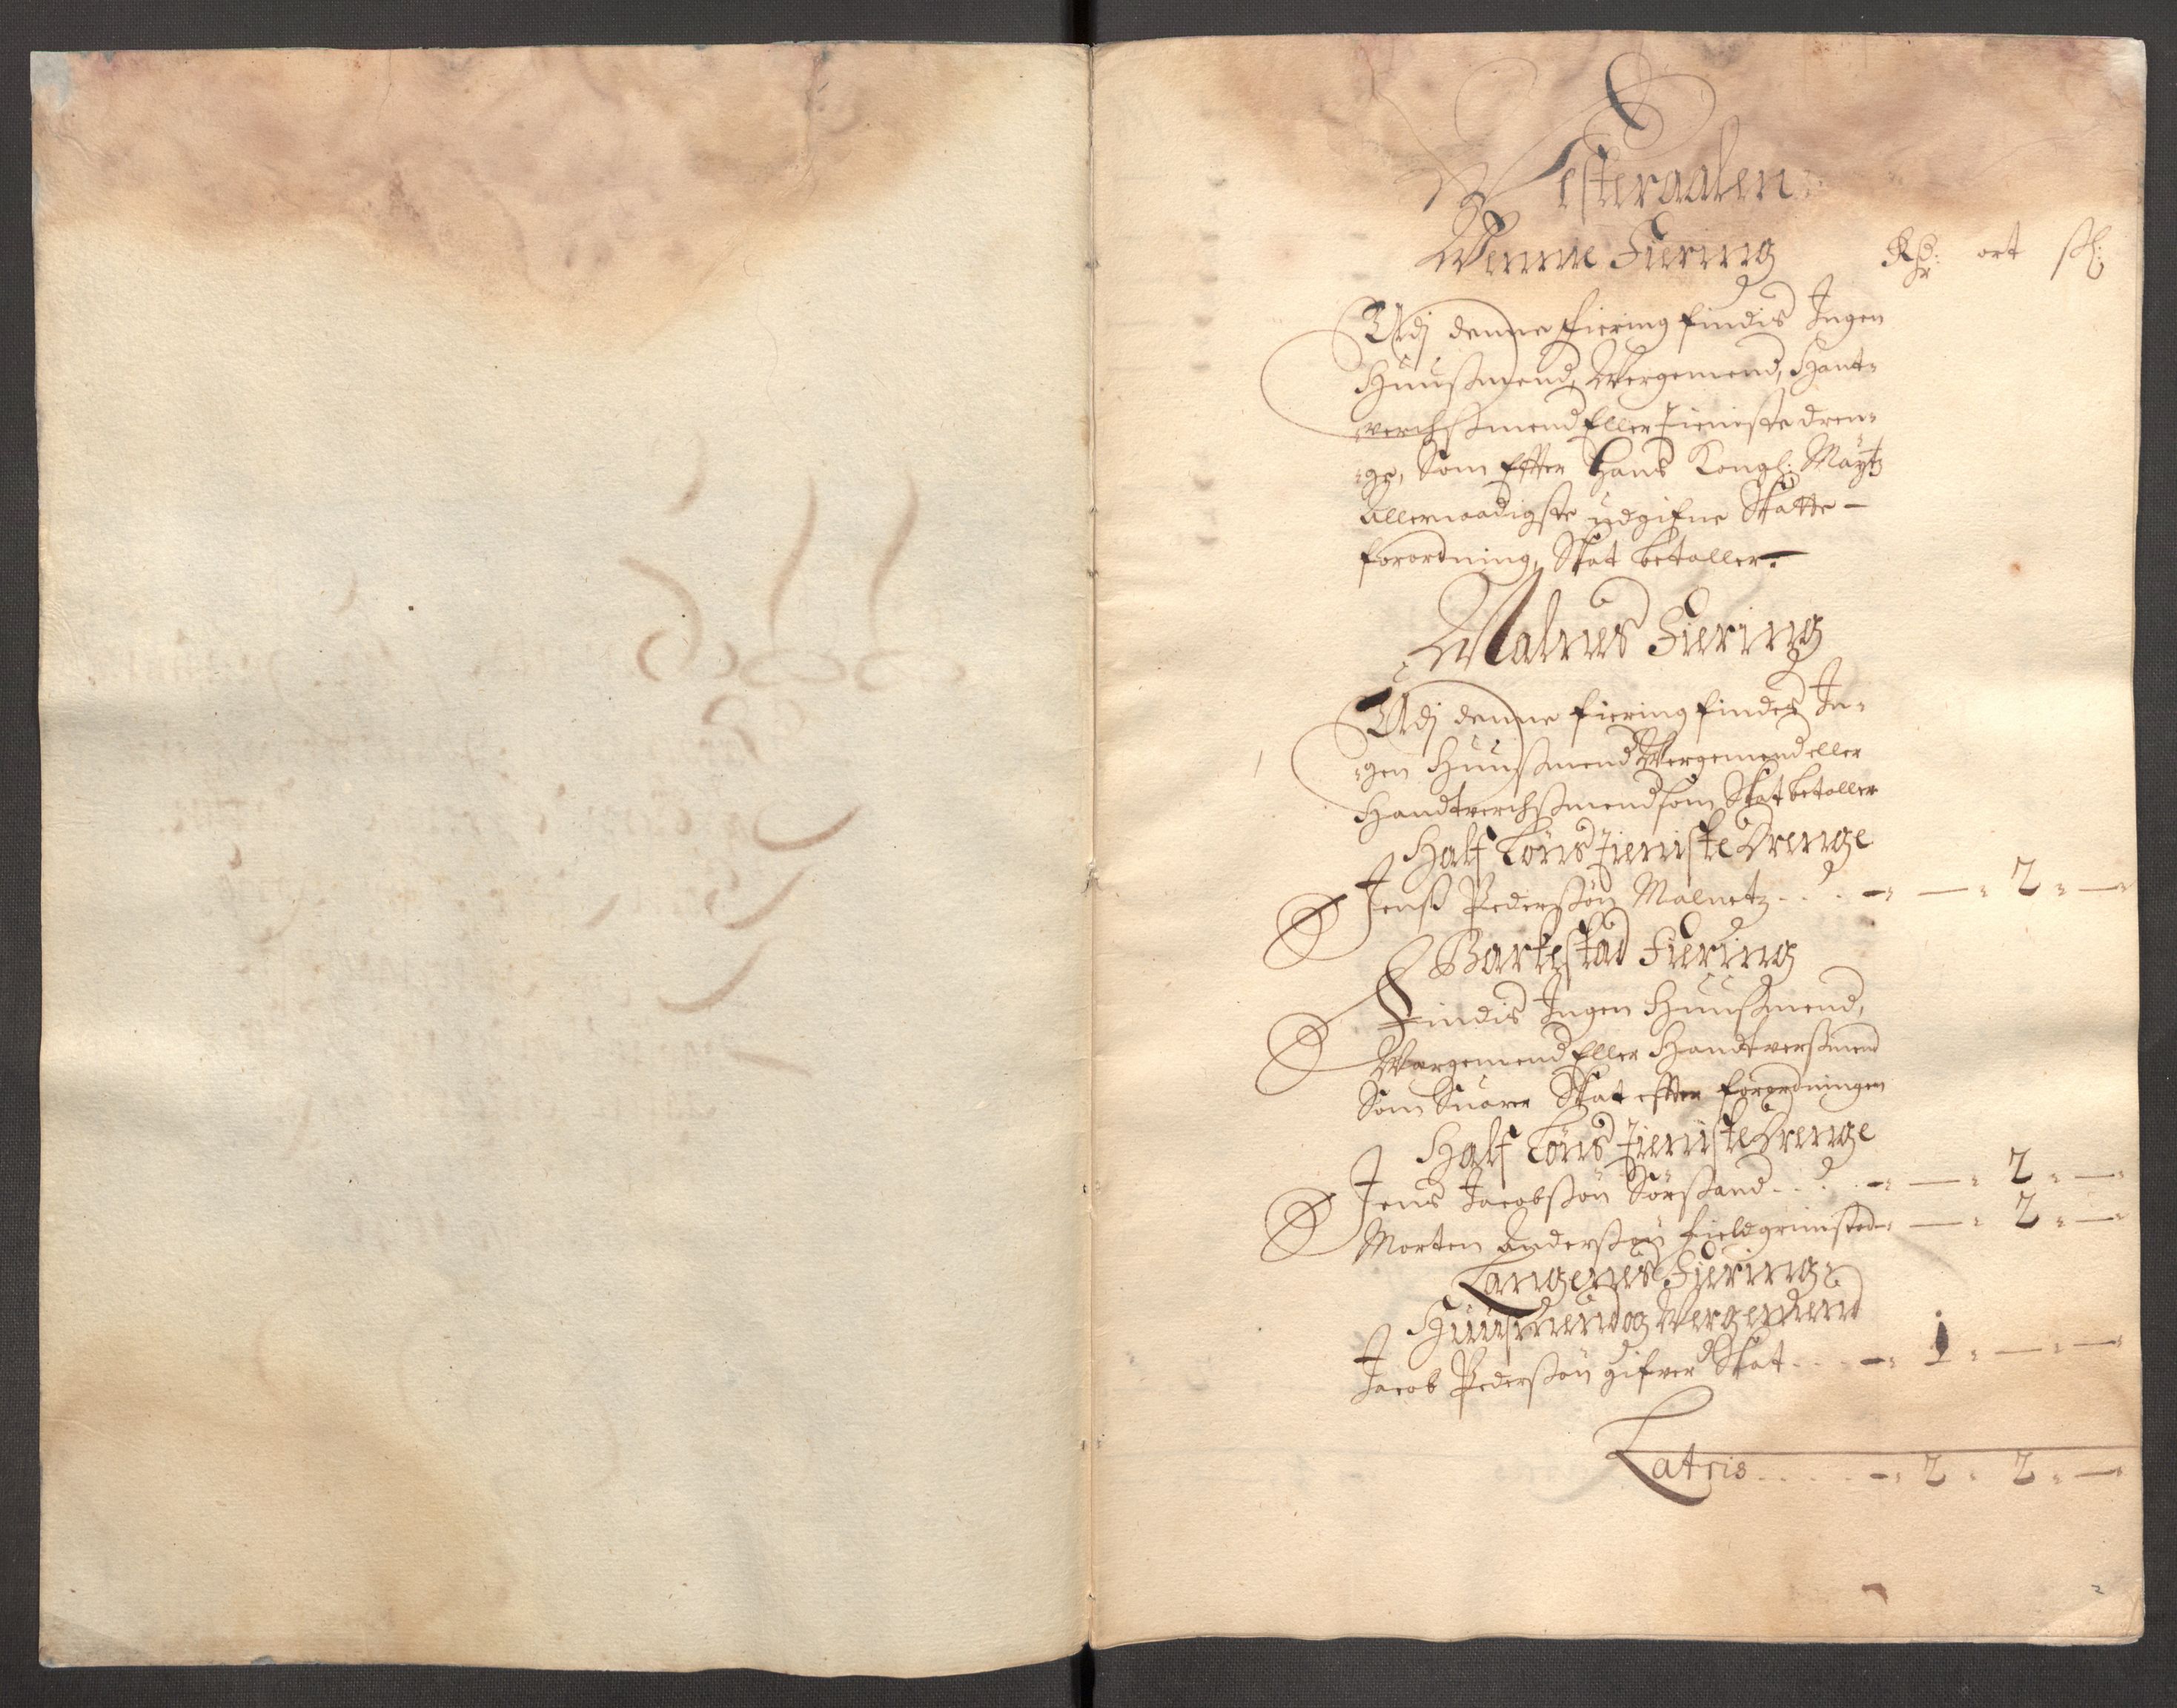 Vesteraalen
Wenne Fiering Rdr: ort sk:
Udj denne fiering findis Ingen
Huusmend, Wergemend, Hant-
-verchsmend Eller tieniste dren-
-ge, Som Efter Hans Kongl: Maytz
allernaadigste udgifne Skatte-
forordning, Skat betaller.
Malnes Fiering
Udj denne fiering findes In-
-gen Huusmend Wergemend eller
Handtverchsmend som Skat betaller
Half Löns tieniste Drenge
Jenß Pederßön Malnetz . . . — 2 —
Barkestad Fiering
Findis Ingen Huusmend,
Wergemend Eller Handtversmend
Som Suarer Skat efter forordningen
Half Löns tieniste Drenge
Jens Jacobsön Sörsand . . . — 2 —
Morten Andersön Fieldgrimsted — 2 —
Langenes Fiering
Huusmend og Wergemend
Jacob Pedersön gifver Skat . . . 1 — —
Latris . . . . . 2 2 —